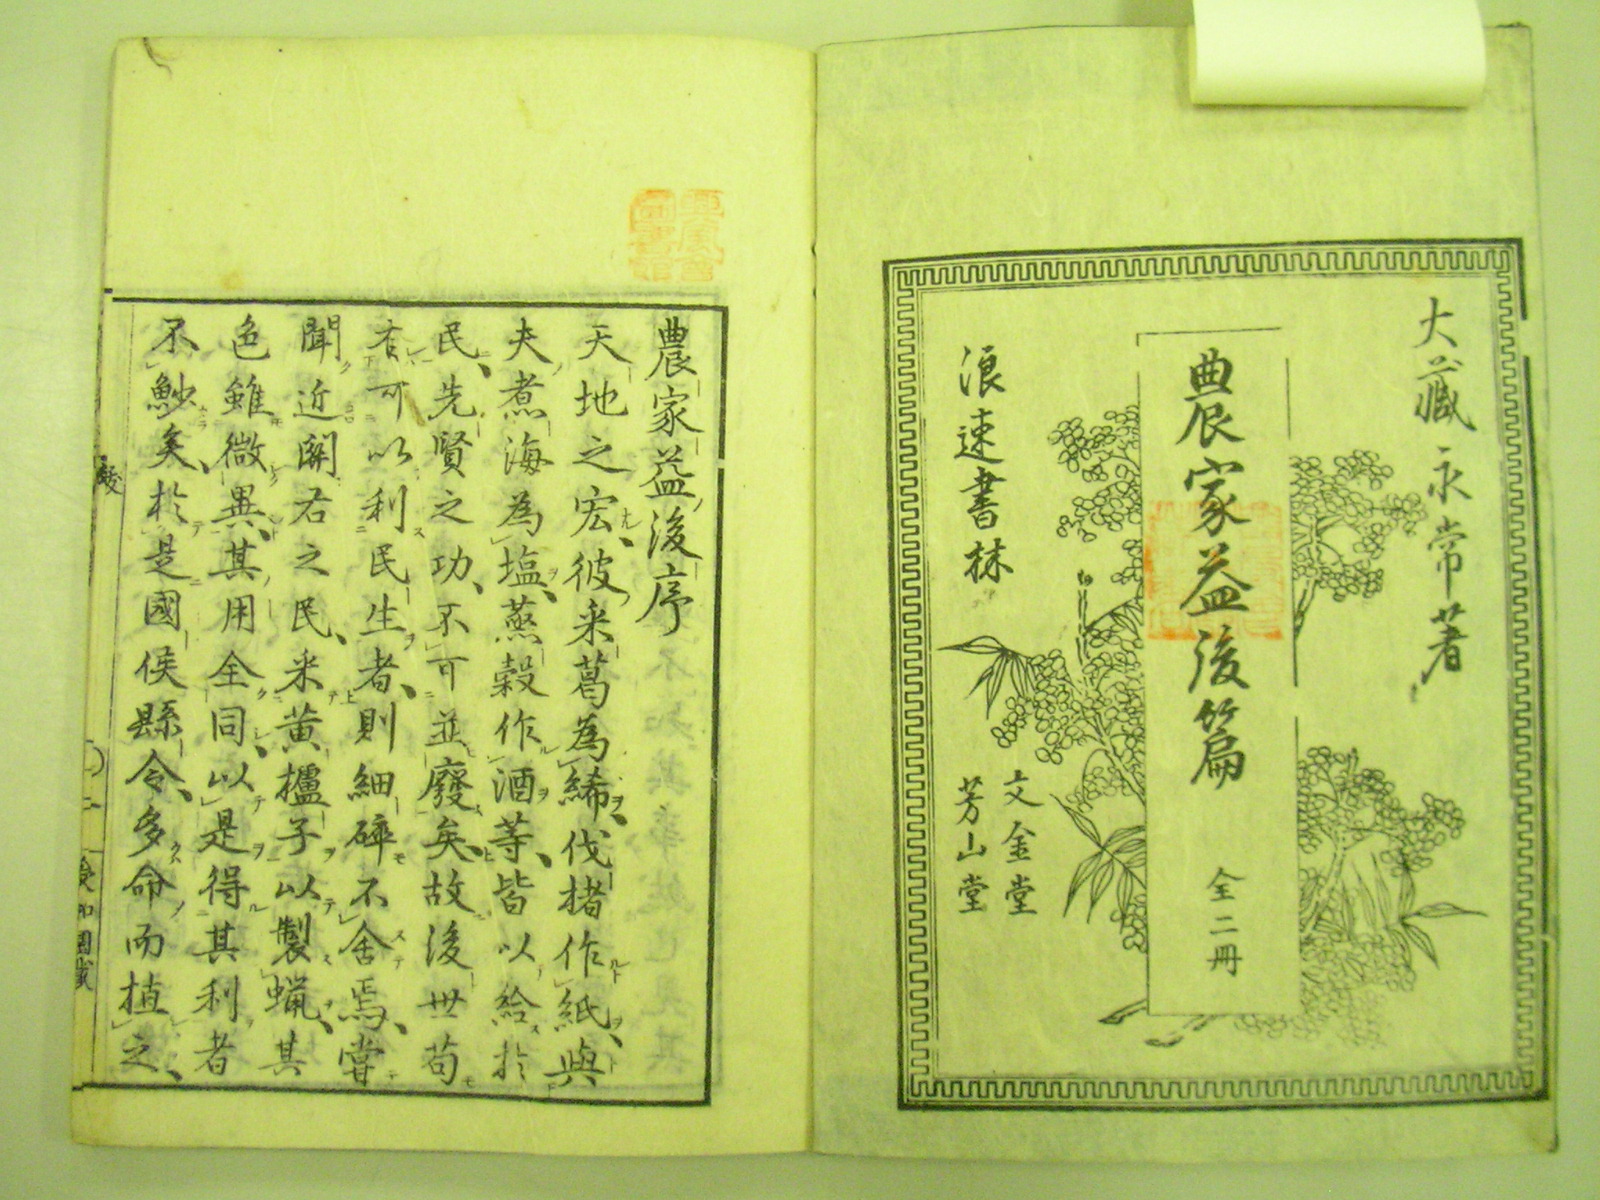 大藏永常著
農家益後篇
全二冊
浪速書林
文金堂
芳山堂
農家益後序
天地之宏、彼采葛為絺、伐楮作紙、與
夫煮海為塩、蒸穀作酒等、皆以給於
民、先賢之功、不可並廢矣、故後世苟
有可以利民生者、則細碎不舍焉、嘗
聞近關右之民、采黄攎子以製蝋、其
色雖微異、其用全同、以是得其利者
不鮮矣、於是國侯縣令、多命而植之、